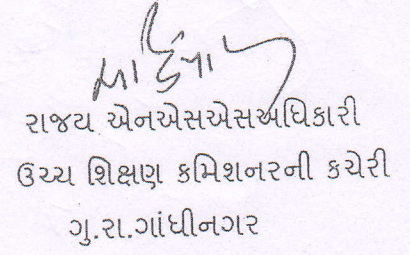 રાજય એનએસએસઅધિકારી
ઉચ્ચ શિક્ષણ કમિશનરની કચેરી
ગુ.રા.ગાંધીનગર